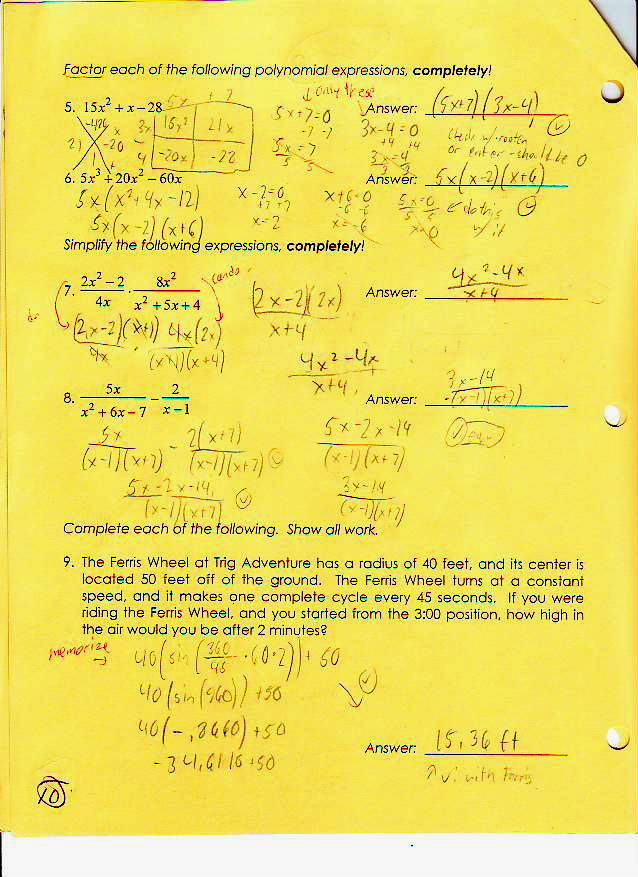 Factor each of the following polynomial expressions, completely!
↓ only these
5. 15x² + x − 28
5x + 7
3x 15x² 21x
-4 -20x -28
-420
21 -20
1
5x+7=0
-7 -7
5x=7
5 5
3x-4=0
+4 +4
3x=4
3 3
Answer: (5x+7)(3x-4)
Check w/
or enter - should be 0
6. 5x³ + 20x² − 60x
5x(x²+4x-12)
5x(x-2)(x+6)
x-2=0
+2 +2
x=2
x+6=0
-6 -6
x=-6
5x=0
5 5
x=0
← do this
w/ it
Answer: 5x(x-2)(x+6)
Simplify the following expressions, completely!
7. 2x² − 2 / 4x · 8x² / x² + 5x + 4
(2x-2)(x+1) / 4x · 4x(2x) / (x+1)(x+4)
(2x-2)(2x)
x+4
4x²-4x
x+4
Answer: 4x²-4x / x+4
8. 5x / x² + 6x − 7 − 2 / x − 1
5x / (x-1)(x+7) - 2(x+7) / (x-1)(x+7)
5x-2x-14
(x-1)(x+7)
5x-2x-14
(x-1)(x+7)
3x-14
(x-1)(x+7)
Answer: 3x-14 / (x-1)(x+7)
Complete each of the following. Show all work.
9. The Ferris Wheel at Trig Adventure has a radius of 40 feet, and its center is
located 50 feet off of the ground. The Ferris Wheel turns at a constant
speed, and it makes one complete cycle every 45 seconds. If you were
riding the Ferris Wheel, and you started from the 3:00 position, how high in
the air would you be after 2 minutes?
memorize →
40(sin(360/45 · 60·2))+50
40(sin(960))+50
40(-.8660)+50
-34.6116+50
Answer: 15.36 ft
with Ferris
10